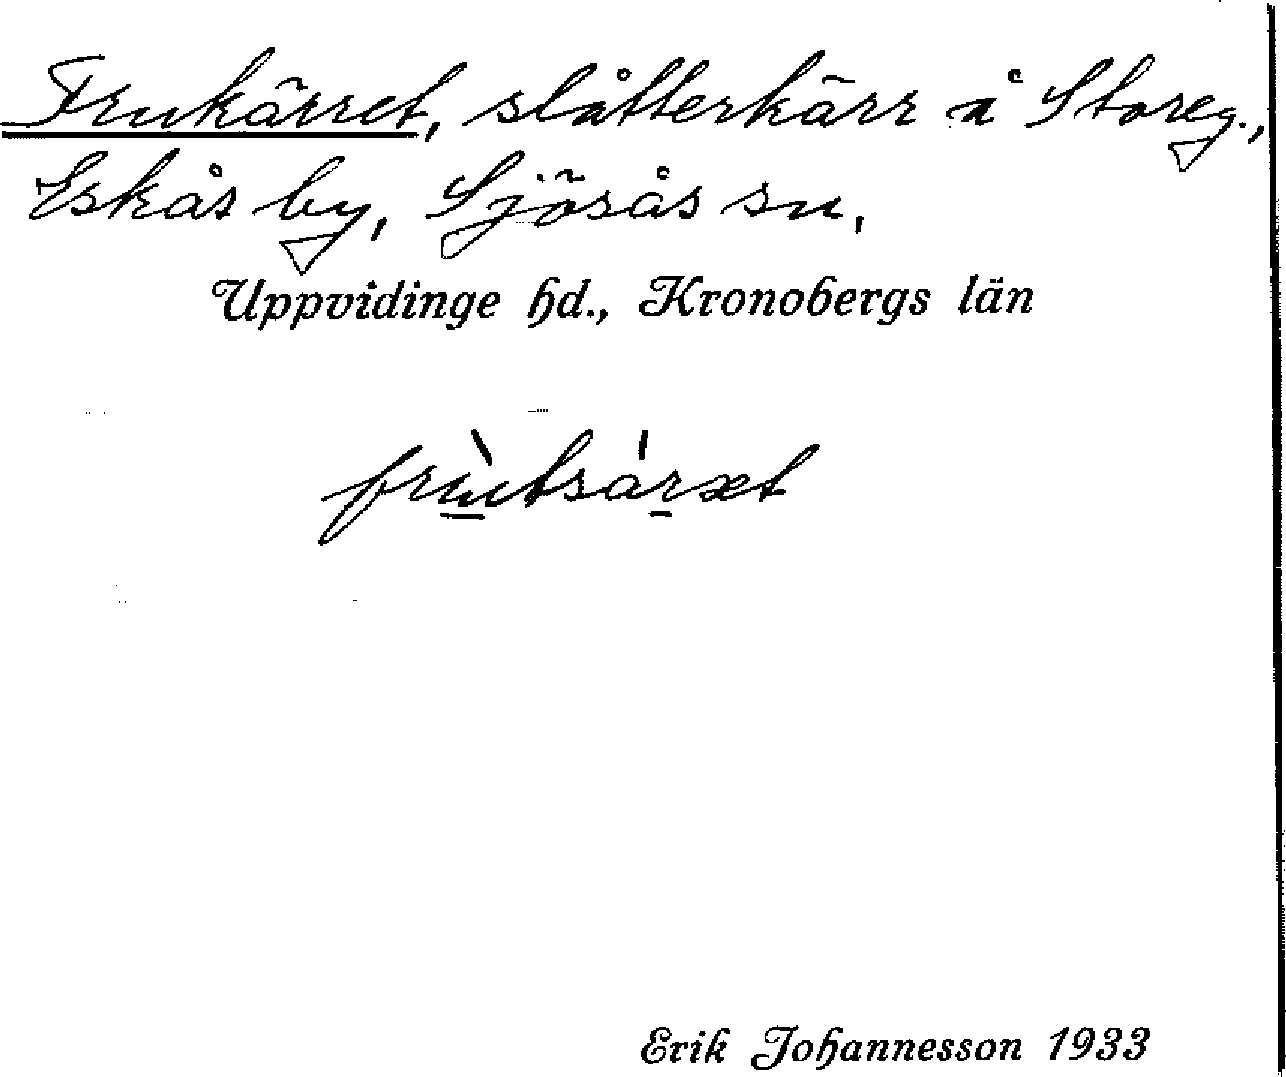 Frukärret, slåtterkärr å Storeg.,
Eskås by, Sjösås sn,
Uppvidinge hd., Kronobergs län
Erik Johannesson 1933